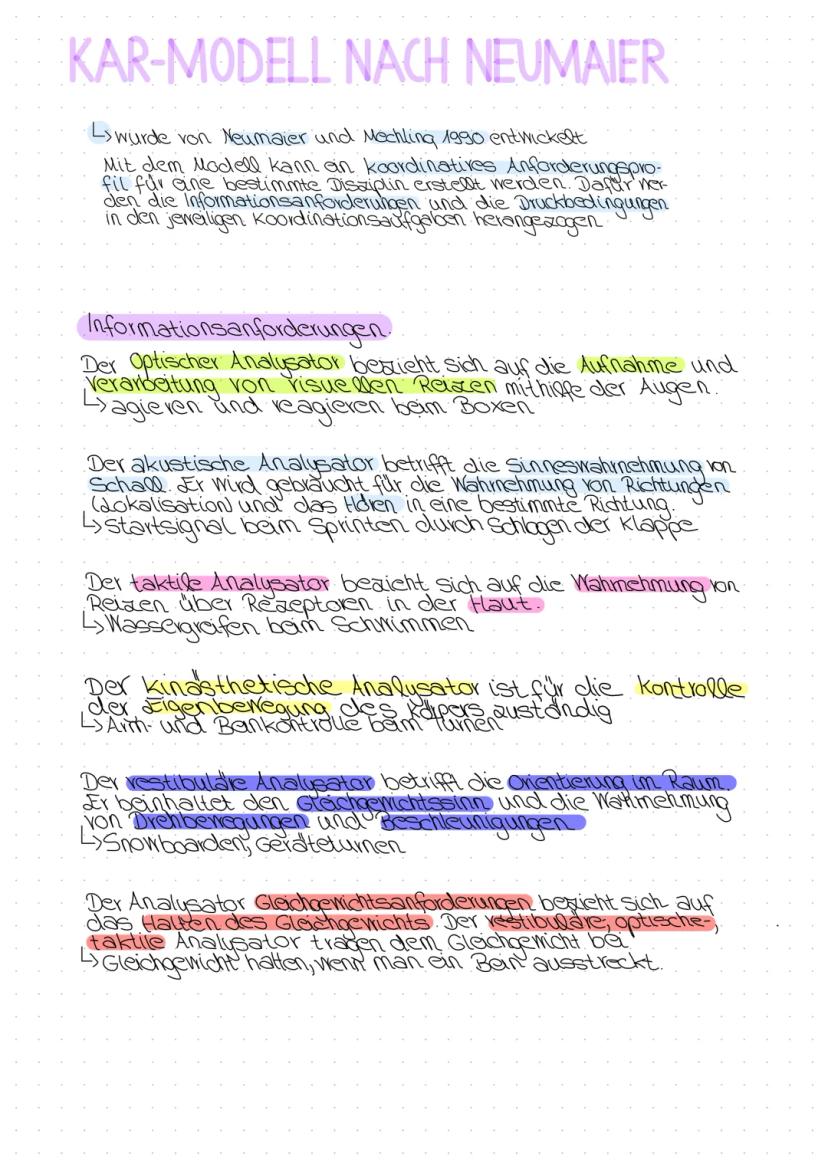 KAR-MODELL NACH NEUMAIER
↳ wurde von Neumaier und Mechling 1990 entwickelt
Mit dem Modell kann ein koordinatives Anforderungspro-
fil für eine bestimmte Disziplin erstellt werden. Dafür wer-
den die Informationsanforderungen und die Druckbedingungen
in den jeweiligen Koordinationsaufgaben herangezogen.
Informationsanforderungen.
Der Optischer Analysator bezieht sich auf die Aufnahme und
Verarbeitung von visuellen Reizen mithilfe der Augen.
↳ agieren und reagieren beim Boxen
Der akustische Analysator betrifft die Sinneswahrnehmung von
Schall. Er wird gebraucht für die Wahrnehmung von Richtungen
(Lokalisation) und das Hören in eine bestimmte Richtung.
↳ Startsignal beim Sprinten durch Schlagen der Klappe
Der taktile Analysator bezieht sich auf die Wahrnehmung von
Reizen über Rezeptoren in der Haut.
↳ Wassergreifen beim Schwimmen
Der kinästhetische Analysator ist für die Kontrolle
der Eigenbewegung des Körpers zuständig
↳ Arm- und Beinkontrolle beim Turnen
Der vestibuläre Analysator betrifft die Orientierung im Raum.
Er beinhaltet den Gleichgewichtssinn und die Wahrnehmung
von Drehbewegungen und Beschleunigungen
↳ Snowboarden, Geräteturnen
Der Analysator Gleichgewichtsanforderungen bezieht sich auf
das Halten des Gleichgewichts. Der vestibuläre, optische,
taktile Analysator tragen dem Gleichgewicht bei
↳ Gleichgewicht halten, wenn man ein Bein ausstreckt.